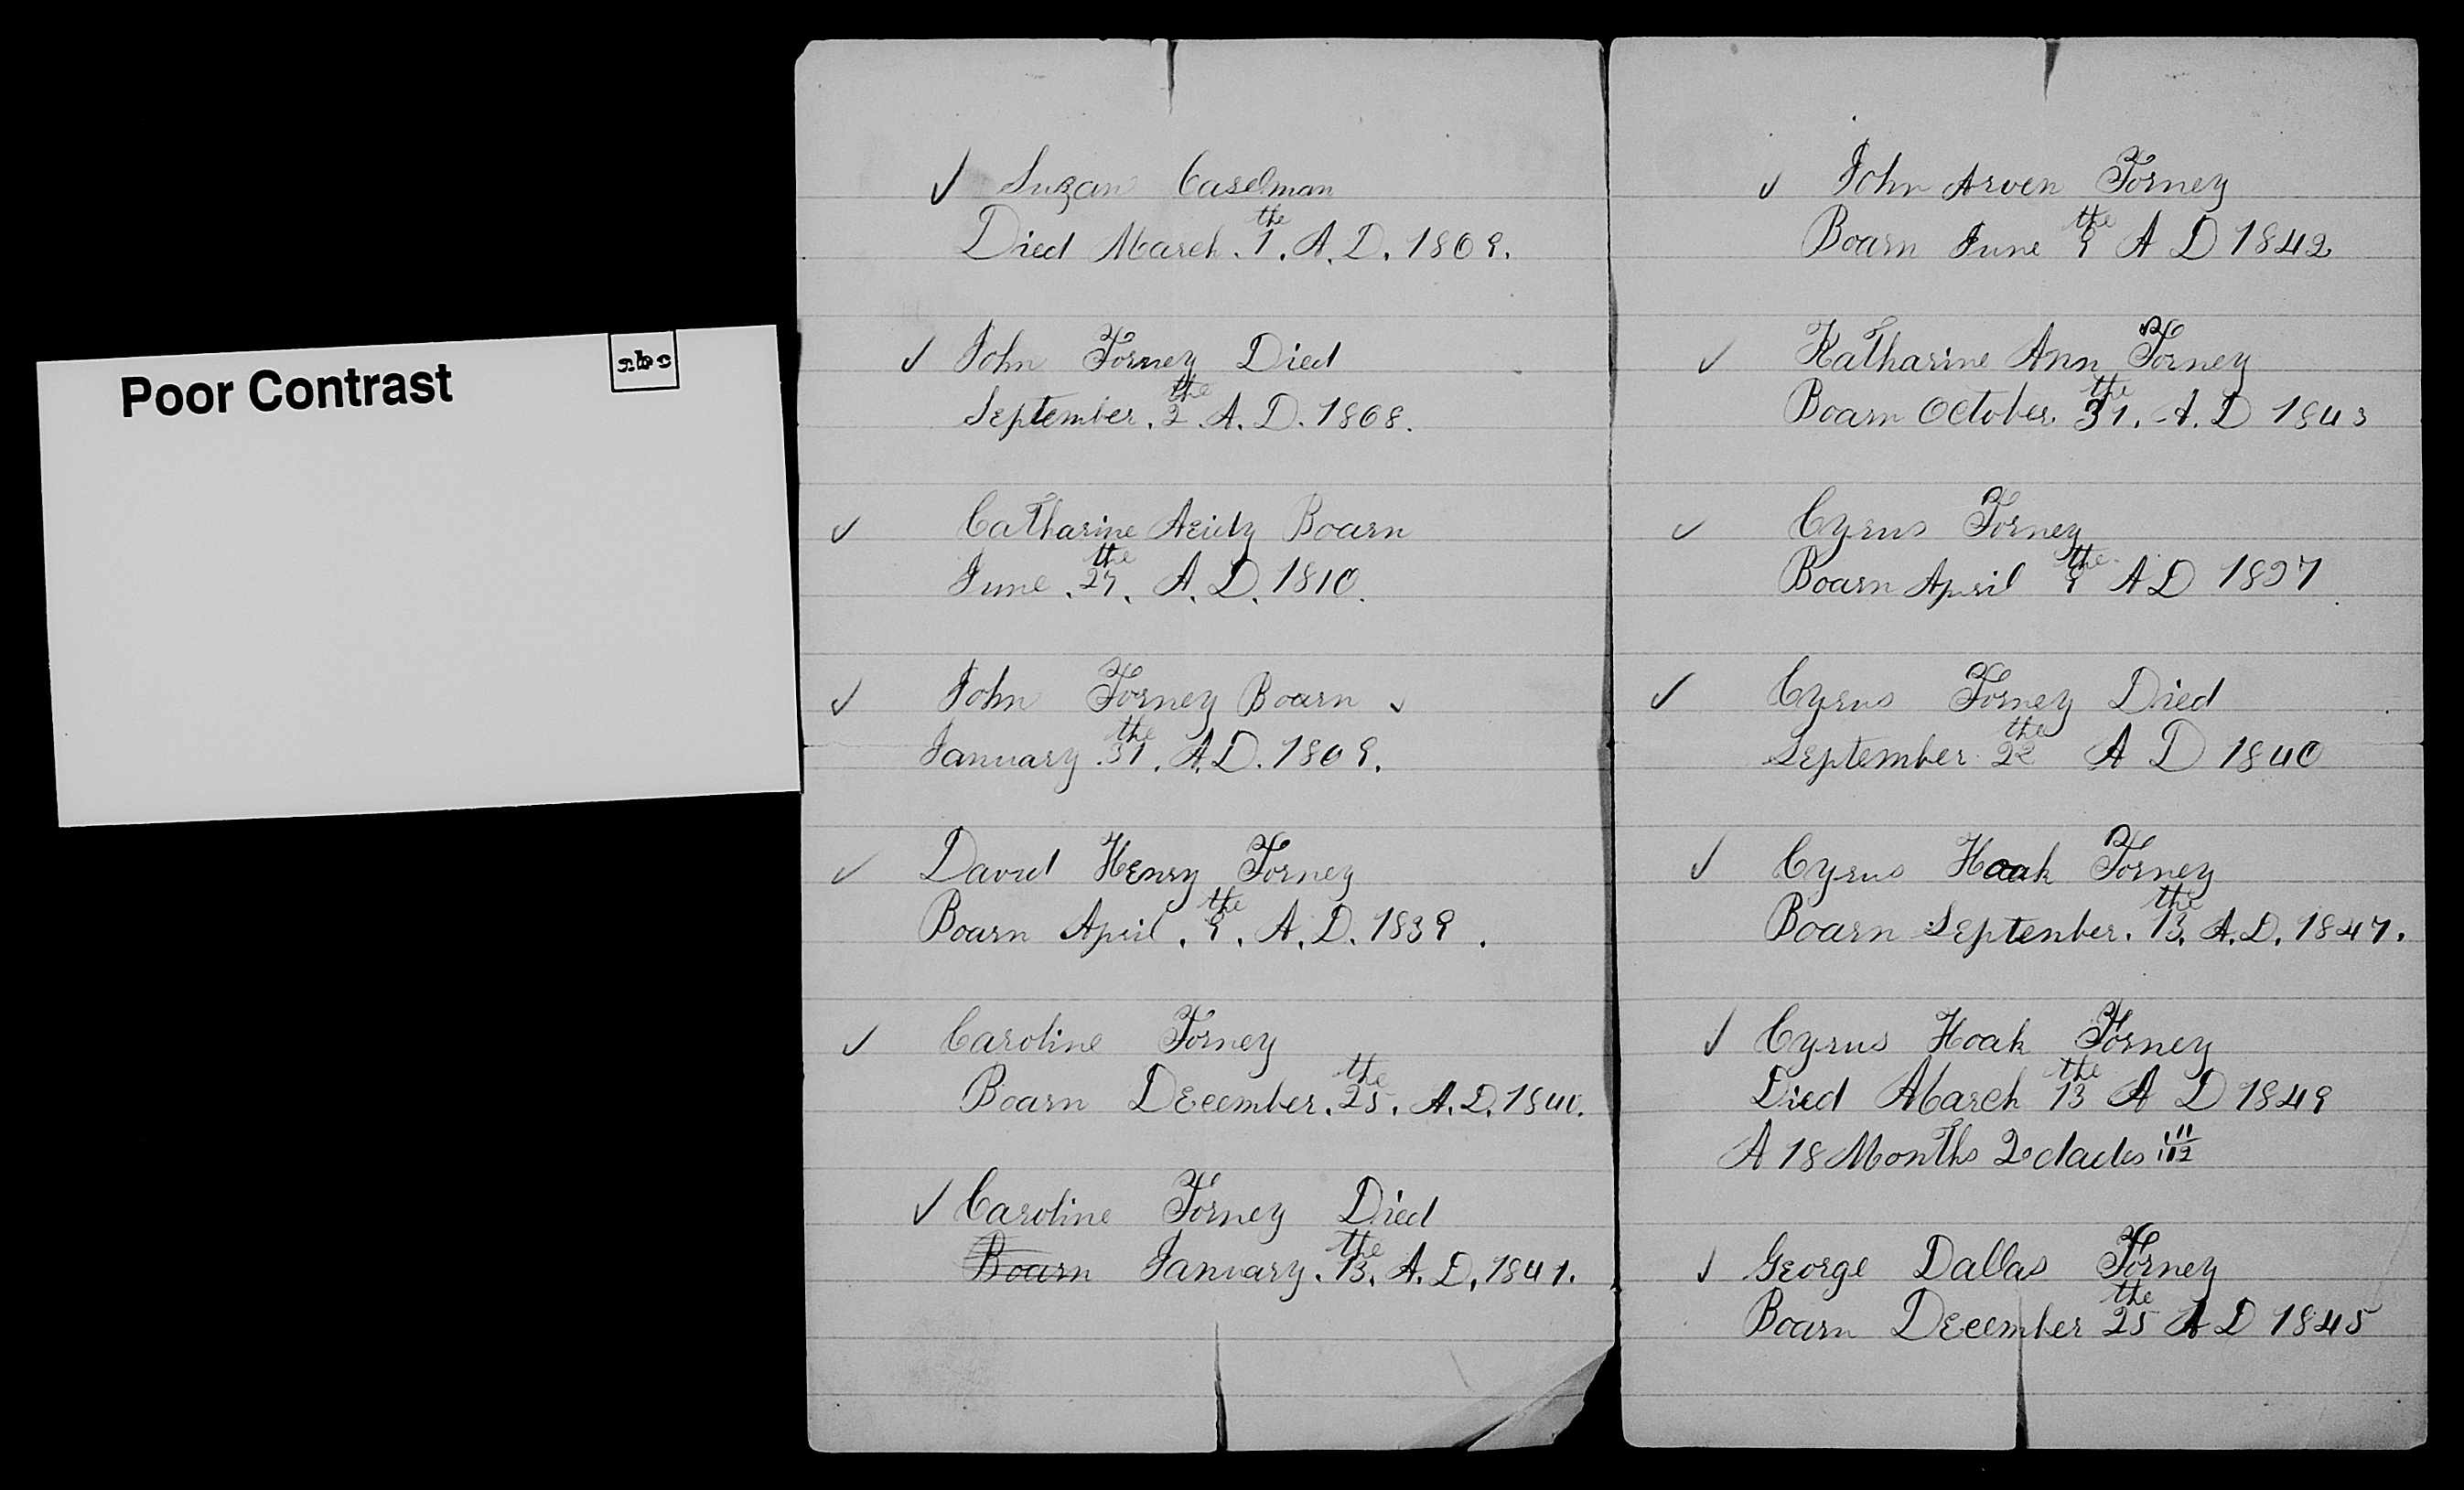 Poor Contrast
abc
Suzan Caselman
Died March. 1.the A. D. 1869.
John Forney Died
September. 2.the A. D. 1868.
Catharine Boarn
June. 27.the A. D. 1810.
John Forney Boarn
January. 31.the A. D. 1809.
David Henry Forney
Boarn April. 9.the A. D. 1839.
Caroline Forney
Boarn DEcember. 25.the A. D. 1840.
Caroline Forney Died
Boarn January. 13.the A. D. 1841.
John Arven Forney
Boarn June 9the A D 1842
Katharine Ann Forney
Boarn October. 31.the A. D 1843
Cyrus Forney
Boarn April 9the A D 1837
Cyrus Forney Died
September 22the A D 1840
Cyrus Hoak Forney
Boarn September. 13.the A. D. 1847.
Cyrus Hoak Forney
Died March 13the A D 1849
A 18 Months
GEorge Dallas Forney
Boarn DEcember 25the A D 1845